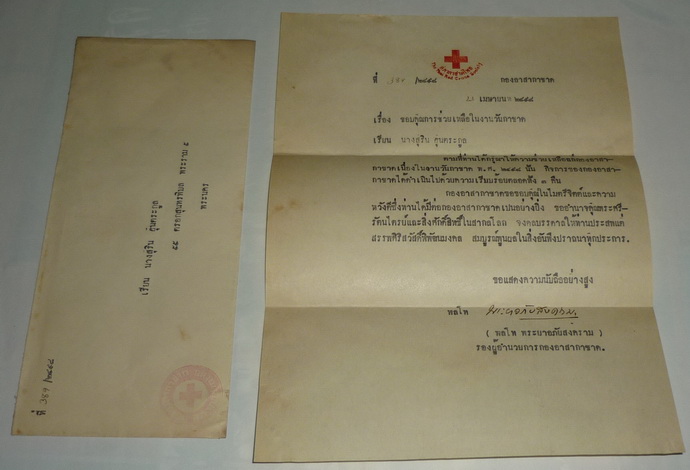 เรียน นางสุริน คุ้นตระกูล
๕๕ ตรอกสุนทรพิมล พระราม ๔
พระนคร
ที่ 389 /๒๔๙๙
สภากาชาดไทย
The Thai Red Cross Society
ที่ 389 /๒๔๙๙ กองอาสากาชาด
เมษายน ๒๔๙๙
เรื่อง ขอบคุณการช่วยเหลือในงานวันกาชาด
เรียน นางสุริน คุ้นตระกูล
ตามที่ท่านได้กรุณาให้ความช่วยเหลือแก่กองอาสา-
กาชาดเนื่องในงานวันกาชาด พ.ศ. ๒๔๙๙ นั้น กิจการของกองอาสา-
กาชาดได้ดำเนินไปด้วยความเรียบร้อยตลอดทั้ง ๓ คืน
กองอาสากาชาดขอขอบคุณในไมตรีจิตต์และความ
หวังดีซึ่งท่านได้มีต่อกองอาสากาชาดเป็นอย่างยิ่ง ขออำนาจคุณพระศรี-
รัตนไตรย์และสิ่งศักดิ์สิทธิ์ในสากลโลก จงดลบรรดาลให้ท่านประสพแต่
สรรพศิริสวัสดิ์พิพัฒนมงคล สมบูรณ์พูนผลในสิ่งอันพึงปรารถนาทุกประการ.
ขอแสดงความนับถืออย่างสูง
พลโท พระยาอภัยสงคราม
( พลโท พระยาอภัยสงคราม )
รองผู้อำนวยการกองอาสากาชาด.